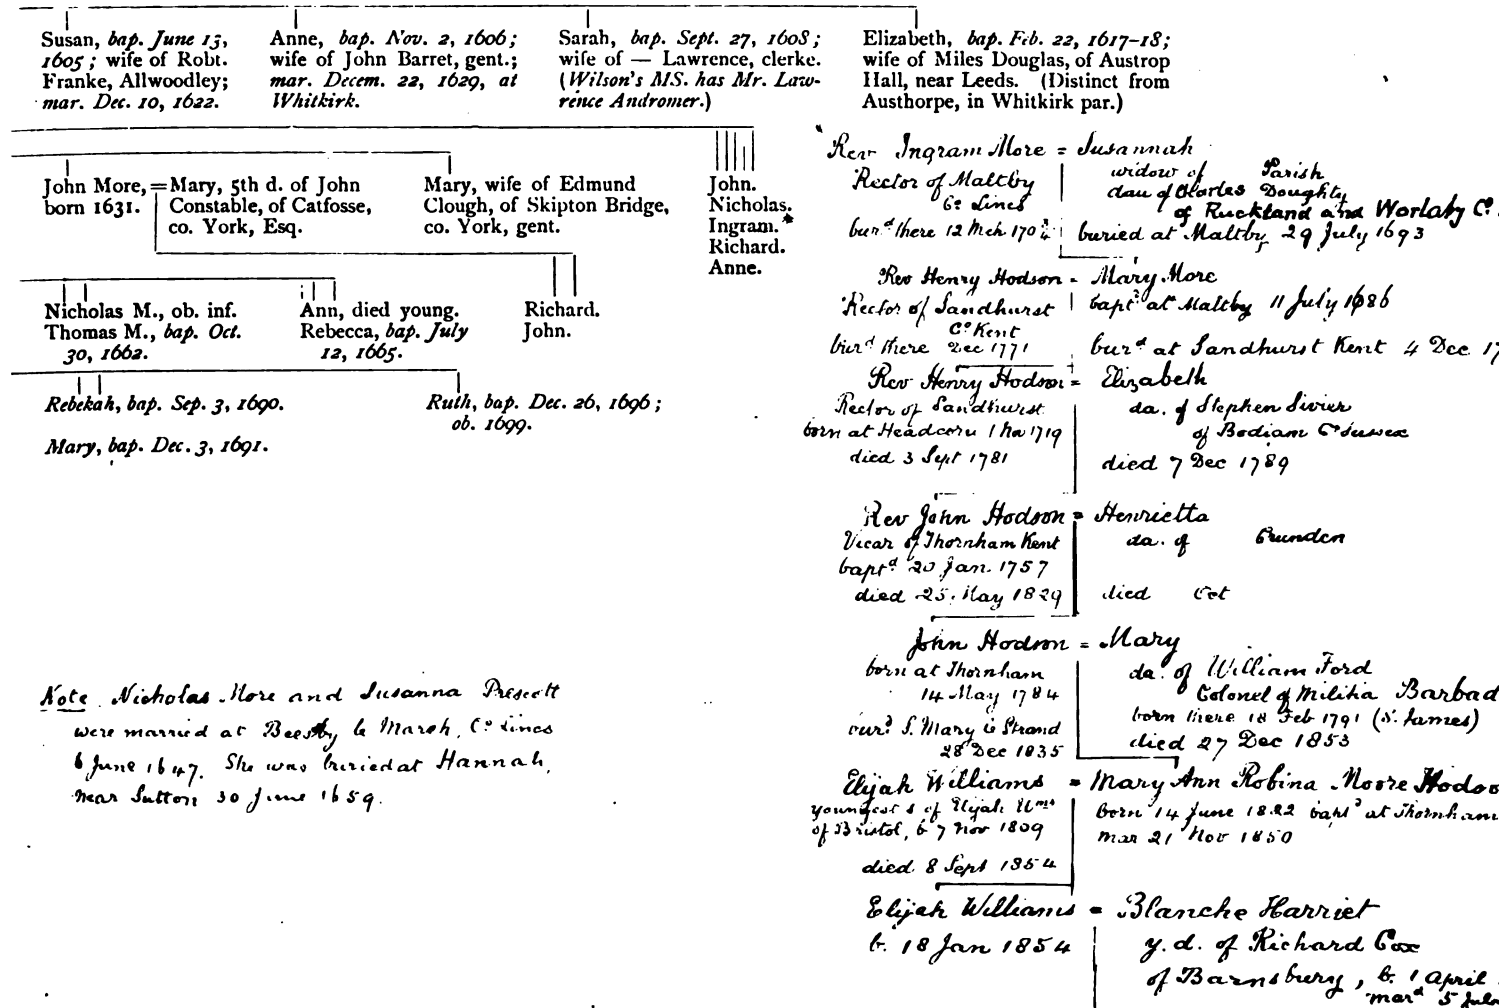 Susan, bap. June 13,
1605; wife of Robt.
Franke, Allwoodley;
mar. Dec. 10, 1622.
Anne, bap. Nov. 2, 1606;
wife of John Barret, gent.;
mar. Decem. 22, 1629, at
Whitkirk.
Sarah, bap. Sept. 27, 1608;
wife of — Lawrence, clerke.
(Wilson's MS. has Mr. Law-
rence Andromer.)
Elizabeth, bap. Feb. 22, 1617-18;
wife of Miles Douglas, of Austrop
Hall, near Leeds. (Distinct from
Austhorpe, in Whitkirk par.)
John More,=
born 1631.
Mary, 5th d. of John
Constable, of Catfosse,
co. York, Esq.
Mary, wife of Edmund
Clough, of Skipton Bridge,
co. York, gent.
John.
Nicholas.
Ingram.*
Richard.
Anne.
Nicholas M., ob. inf.
Thomas M., bap. Oct.
30, 1662.
Ann, died young.
Rebecca, bap. July
12, 1665.
Richard.
John.
Rebekah, bap. Sep. 3, 1690.
Mary, bap. Dec. 3, 1691.
Ruth, bap. Dec. 26, 1696;
ob. 1699.
Note. Nicholas More and Susanna Prescott
were married at Beesby le Marsh, Co Lincs
6 June 1647. She was buried at Hannah,
near Sutton 30 June 1659.
Rev Ingram More = Susannah
Rector of Maltby
Co Lincs
burd there 12 Mch
widow of Parish
dau of Charles Doughty
of Ruckland and Worlaby Co.
buried at Maltby 29 July 1693
Rev Henry Hodson = Mary More
Rector of Sandhurst
Co Kent
burd there Dec 1771
bapt at Maltby 11 July 1686
burd at Sandhurst Kent 4 Dec 17
Rev Henry Hodson = Elizabeth
Rector of Sandhurst
born at Headcorn 1 Nov 1719
died 3 Sept 1781
da. of Stephen Sivier
of Bodiam Co Sussex
died 7 Dec 1789
Rev John Hodson = Henrietta
Vicar of Thornham Kent
baptd 20 Jan. 1757
died 25 May 1829
da. of Crunden
died Oct
John Hodson = Mary
born at Thornham
14 May 1784
burd S. Mary le Strand
28 Dec 1835
da. of William Ford
Colonel of Militia Barbad
born there 18 Feb 1791 (S. James)
died 27 Dec 1853
Elijah Williams = Mary Ann Robina Moore Hodso
youngest s of Elijah Wms
of Bristol, b 7 Nov 1809
died 8 Sept 1854
born 14 June 1822 bapd at Thornham
mar 21 Nov 1850
Elijah Williams = Blanche Harriet
b. 18 Jan 1854
y. d. of Richard Cox
of Barnsbury, b. 1 April
mard 5 July